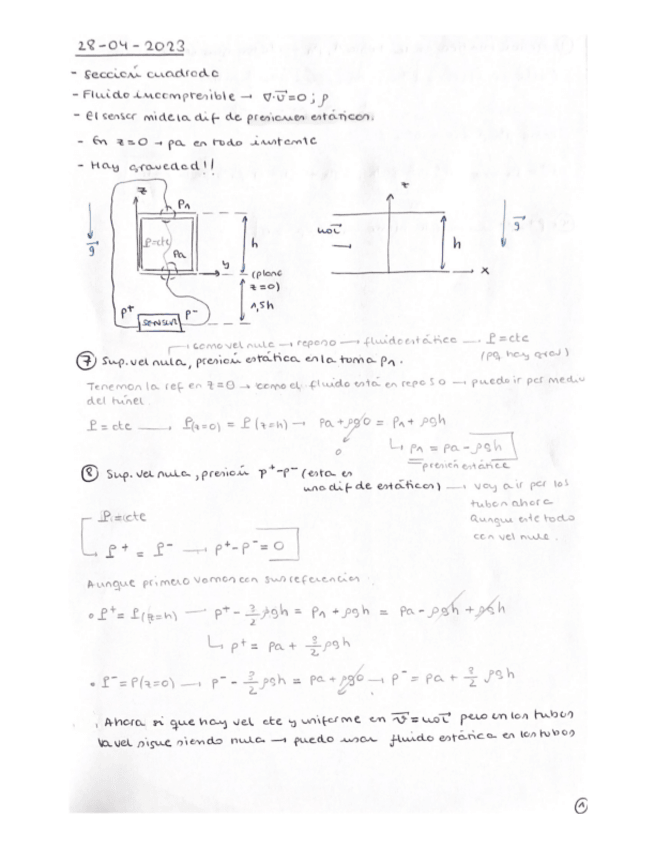 28-04-2023
- Sección cuadrada
- Fluido incompresible → ∇·v⃗=0 ; ρ
- El sensor mide la dif de presiones estáticas.
- En z=0 → pa en todo instante
- Hay gravedad!!
z
P₁
P=cte
Pa
g⃗
h
y
(plano z=0)
1,5h
p⁺
p⁻
SENSOR
z
u₀i⃗
h
g⃗
x
como vel nula → reposo → fluidoestática → P=cte
(pq hay grav)
⑦ Sup. vel nula, presión estática en la toma p₁.
Tenemos la ref en z=0 → como el fluido está en reposo → puedo ir por medio
del túnel.
P=cte → P(z=0) = P(z=h) → pa+ρg0 = p₁+ρgh
0
↳ p₁ = pa-ρgh
presión estática
⑧ Sup. vel nula, presión p⁺-p⁻ (esta es
una dif de estáticas) → voy a ir por los
tubos ahora
Aunque esté todo
con vel nula.
P=cte
↳ P⁺ = P⁻ → p⁺-p⁻=0
Aunque primero vamos con sus referencias.
• P⁺= P(z=h) → p⁺-3/2 ρgh = p₁+ρgh = pa-ρgh+ρgh
↳ p⁺= pa+ 3/2 ρgh
• P⁻=P(z=0) → p⁻-3/2 ρgh = pa+ρg0 → p⁻= pa+ 3/2 ρgh
Ahora si que hay vel cte y uniforme en v⃗=u₀i⃗ pero en los tubos
la vel sigue siendo nula → puedo usar fluido estática en los tubos
1